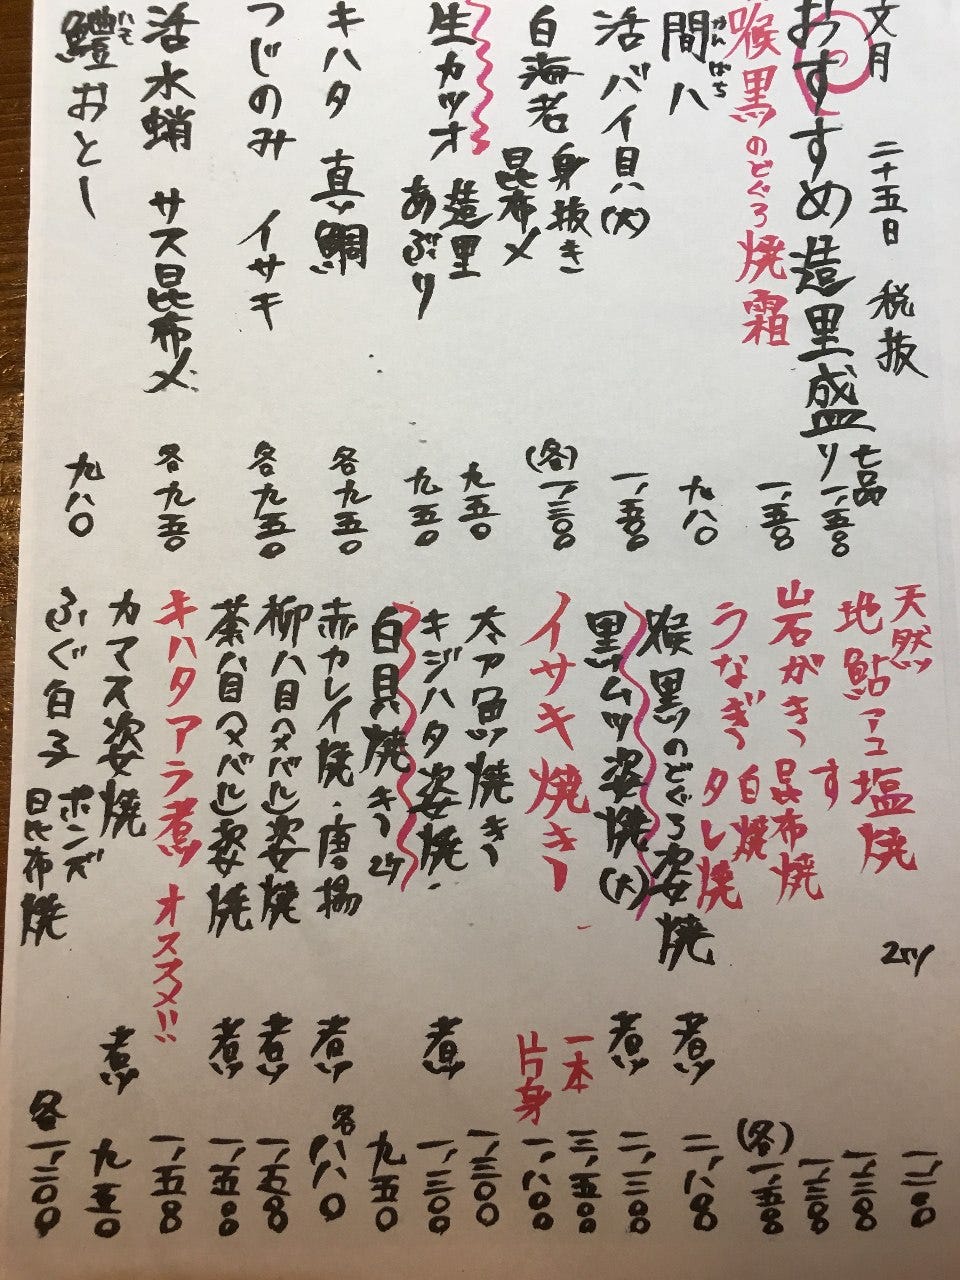 文月 二十五日 税抜
おすすめ造里盛り 七品 一、五〇〇
喉黒のどぐろ焼霜 一、五〇〇
間八 かんぱち 九八〇
活バイ貝(大) 一、五〇〇
白海老 身抜き 昆布〆 (各)一、三〇〇
生カツオ 造里 九五〇
あぶり 九五〇
キハタ 真鯛 各九五〇
つじのみ イサキ 各九五〇
活水蛸 サス昆布〆 各九五〇
鱧おとし 九八〇
天然
地鮎 塩焼
山岩がき 昆布焼
うなぎ 白焼 タレ焼 (各)
喉黒のどぐろ姿焼 煮 二、八〇〇
黒ムツ姿焼(大) 煮 二、三〇〇
イサキ焼き 一本 三、五〇〇
片身 一、八〇〇
太刀魚焼き 一、三〇〇
キジハタ姿焼 煮 一、三〇〇
白貝焼き 2ケ 九五〇
赤カレイ焼・唐揚 煮 各八八〇
柳八目(メバル)姿焼 煮 一、五〇〇
茶八目(メバル)姿焼 煮 一、五〇〇
キハタアラ煮 オススメ!! 一、五〇〇
カマス姿焼 煮 九五〇
ふぐ白子 ポンズ 昆布焼 各一、三〇〇